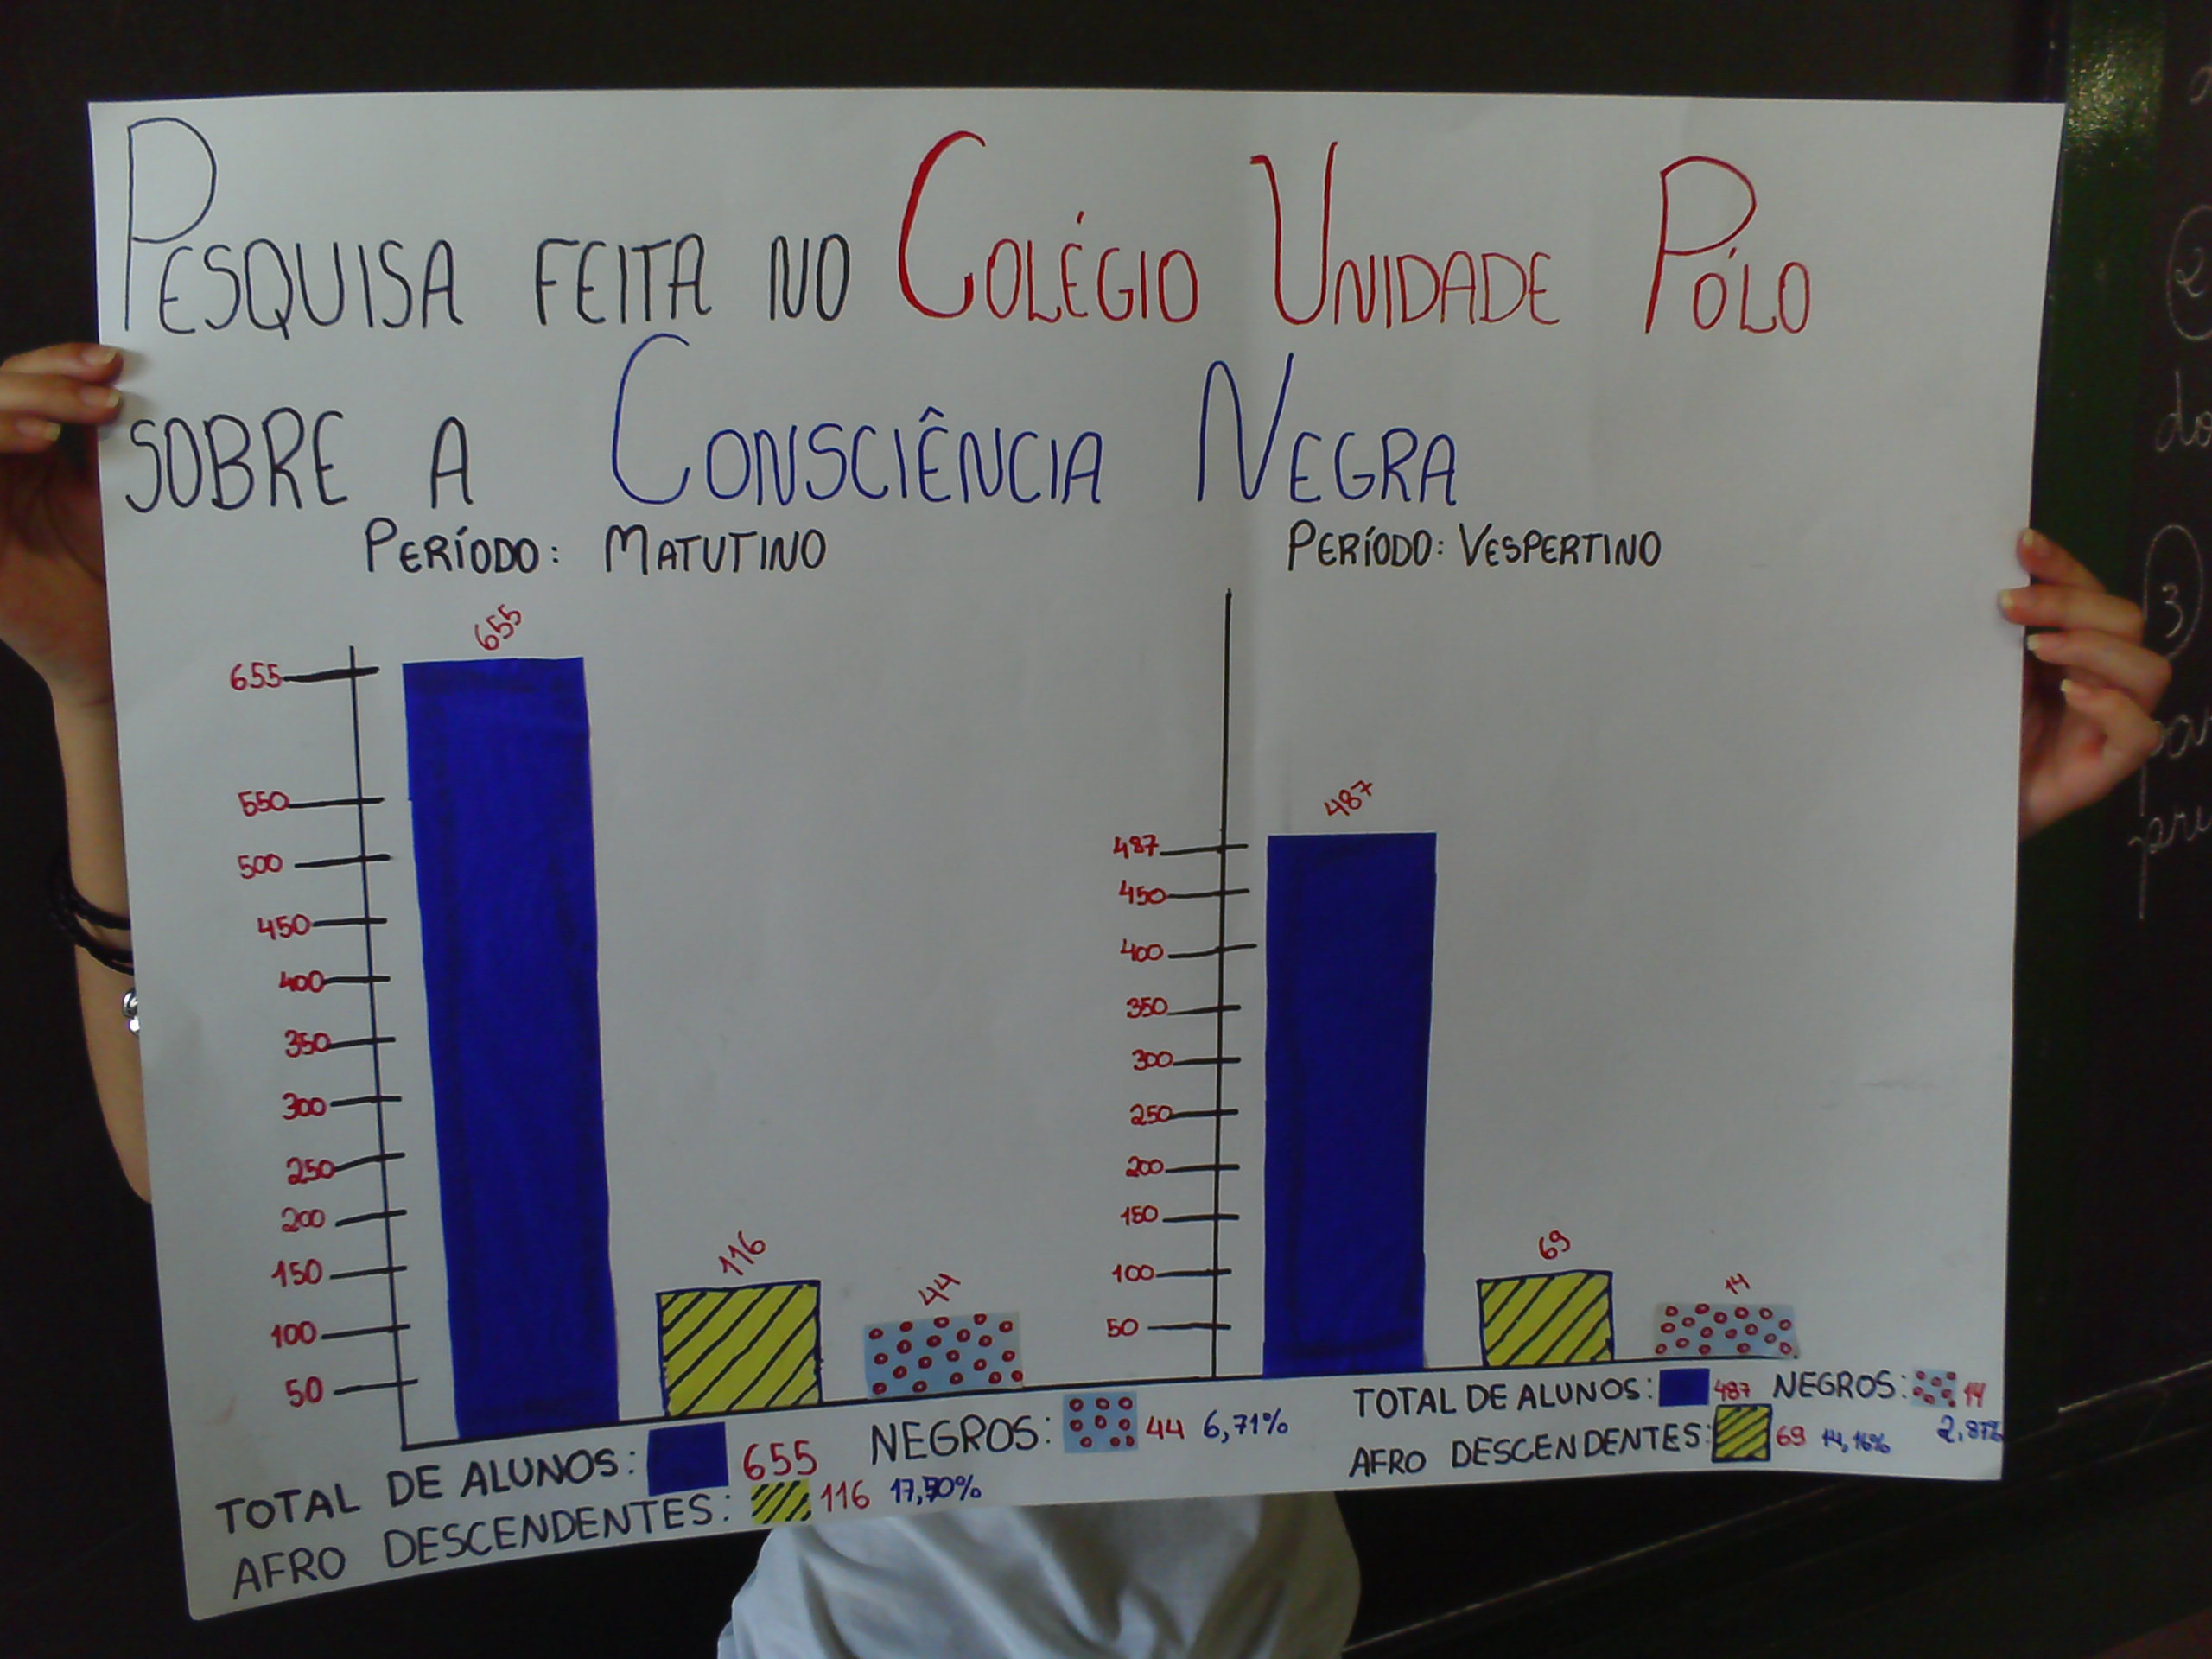 PESQUISA FEITA NO COLÉGIO UNIDADE PÓLO
SOBRE A CONSCIÊNCIA NEGRA
PERÍODO: MATUTINO
655
655
550
500
450
400
350
300
250
200
150
100
50
116
44
TOTAL DE ALUNOS: 655
NEGROS: 44 6,71%
AFRO DESCENDENTES: 116 17,70%
PERÍODO: VESPERTINO
487
487
450
400
350
300
250
200
150
100
50
69
14
TOTAL DE ALUNOS: 487 NEGROS: 14
2,87%
AFRO DESCENDENTES: 69 14,16%
2
do
3